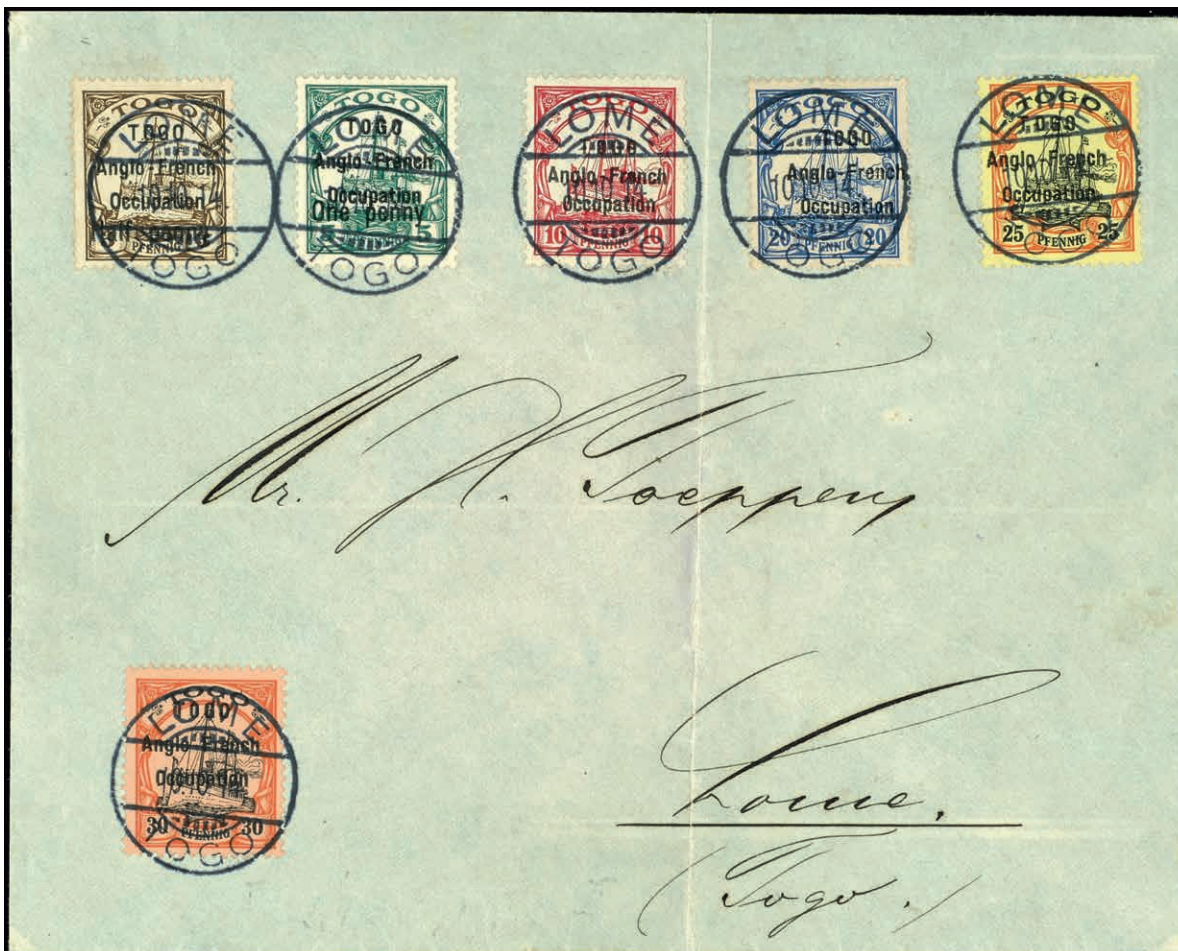 TOGO
TOGO
Anglo-French
Occupation
Half penny
PFENNIG
LOME
TOGO
TOGO
TOGO
Anglo-French
Occupation
One penny
5 5
LOME
TOGO
TOGO
Anglo-French
Occupation
10 PFENNIG 10
LOME
10.10.14
TOGO
TOGO
TOGO
Anglo-French
Occupation
20 PFENNIG 20
LOME
TOGO
TOGO
TOGO
Anglo-French
Occupation
25 PFENNIG 25
LOME
Mr. H. Toeppeng
TOGO
TOGO
Anglo-French
Occupation
30 PFENNIG 30
LOME
10.10.14
TOGO
Lome.
(Togo.)